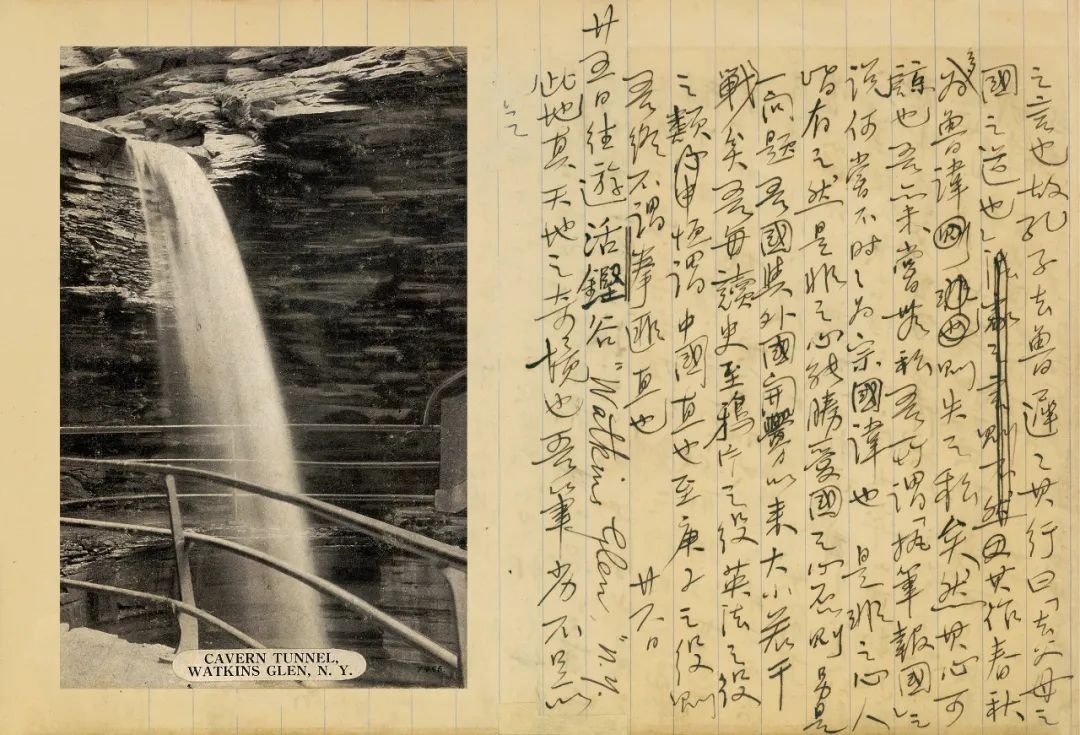 之言也故孔子去魯遲〻其行曰「去父母之
國之道也」然其作春秋
多為魯諱則失之私矣然其心可
諒也吾亦未嘗無私吾所謂「執筆報國」之
說何嘗不時〻為宗國諱也 是非之心人
皆有之然是非之心能勝愛國之心否則另是
一問題吾國與外國開釁以來大小若干
戰矣吾每讀史至鴉片之役英法之役
之類恆謂中國直也至庚子之役則
吾終不謂拳匪直也 廿六日
廿五日往遊活鏗谷 "Watkins Glen," N.Y.
此地真天地之奇境也吾筆劣不足以
之
CAVERN TUNNEL,
WATKINS GLEN, N. Y.